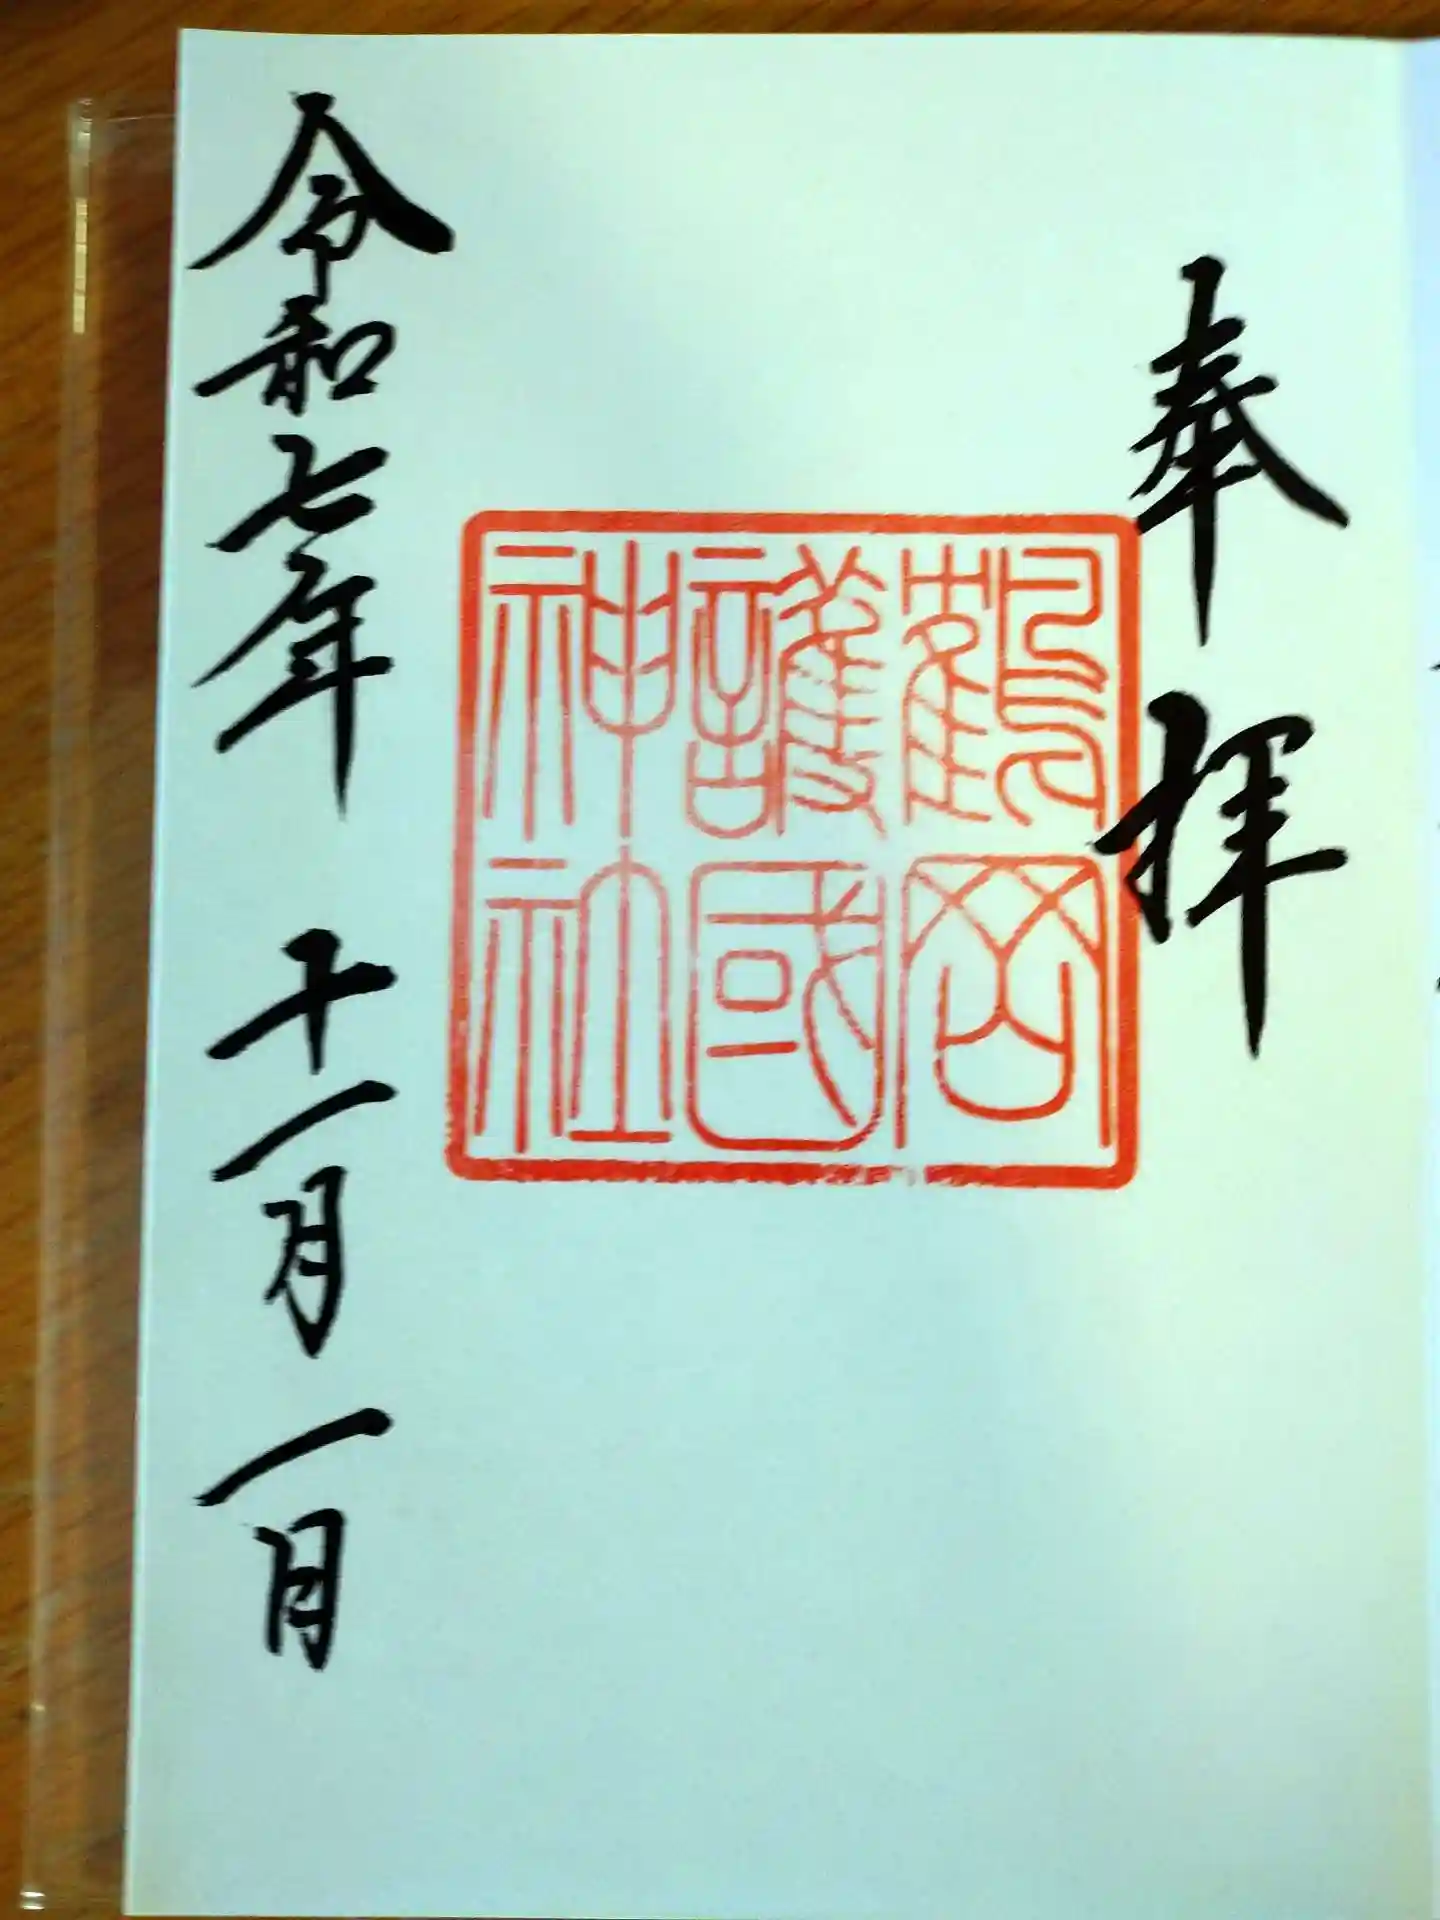 奉拝
鶴岡
護國
神社
令和七年 十一月 一日